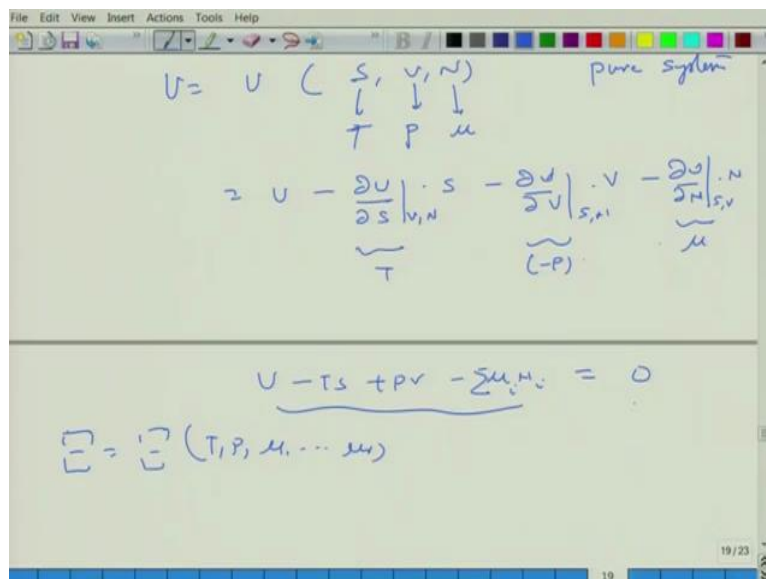 File Edit View Insert Actions Tools Help
U = U ( S, V, N) pure system
↓ ↓ ↓
T P μ
= U - ∂U/∂S|V,N · S - ∂U/∂V|S,N · V - ∂U/∂N|S,V · N
T (-P) μ
U - TS + PV - Σμi Ni = 0
Ξ = Ξ (T, P, μ, ... μr)
19/23
19